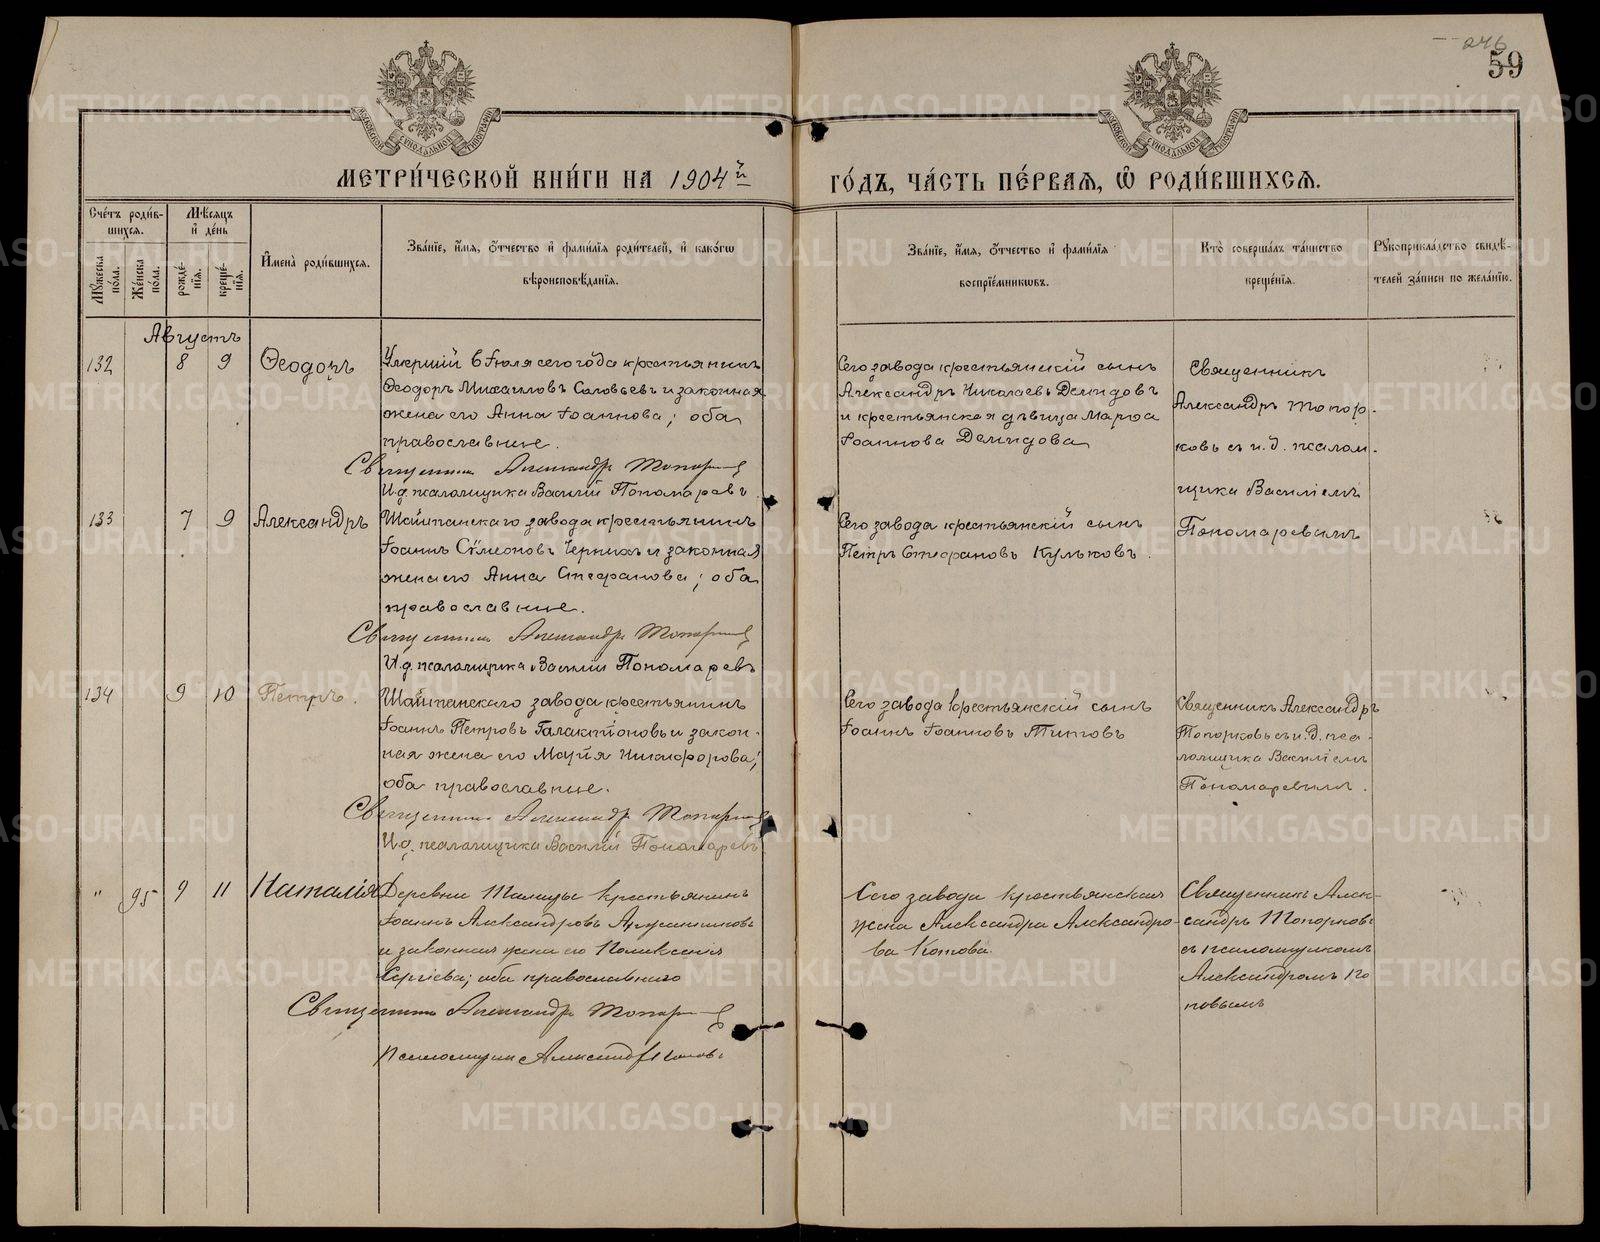 246
59
МЕТРИ́ЧЕСКОЙ КНИ́ГИ НА 1904й
ГО́ДЪ, ЧА́СТЬ ПЕ́РВАѦ, Ѽ РОДИ́ВШИХСѦ.
Сче́тъ роди́в-
шихсѧ.
Мѣ́сѧцъ
и҆ де́нь
Мꙋ́жеска
по́ла.
Же́нска
по́ла.
рожде́-
нїѧ.
креще́-
нїѧ.
И҆мена̀ роди́вшихсѧ.
Зва́нїе, и҆́мѧ, ѻ҆́тчество и҆ фами́лїѧ роди́телей, и҆ како́гѡ
вѣроисповѣ́данїѧ.
Зва́нїе, и҆́мѧ, ѻ҆́тчество и҆ фами́лїѧ
воспрїе́мникѡвъ.
Кто̀ соверша́лъ та́инство
креще́нїѧ.
Рꙋкоприкла́дство свидѣ́-
телей за́писи по жела́нїю.
Августъ
132 8 9 Ѳеодоръ
Умершій 6 Іюля сего года крестьянинъ
Ѳеодоръ Михаиловъ Соловьевъ и законная
жена его Анна Іоаннова; оба
православные.
Священникъ Александръ Топорковъ
И.д. псаломщика Василій Пономаревъ
Сего завода крестьянскій сынъ
Александръ Николаевъ Демидовъ
и крестьянская дѣвица Марѳа
Іоаннова Демидова
Священникъ
Александръ Топор-
ковъ съ и.д. псалом-
щика Василіемъ
Пономаревымъ
133 7 9 Александръ
Шайтанскаго завода крестьянинъ
Іоаннъ Сѵмеоновъ Черныхъ и законная
жена его Анна Стефанова; оба
православные.
Священникъ Александръ Топорковъ
И.д. псаломщика Василій Пономаревъ
Сего завода крестьянскій сынъ
Петръ Стефановъ Кульковъ.
134 9 10 Петръ.
Шайтанскаго завода крестьянинъ
Іоаннъ Петровъ Галактіоновъ и закон-
ная жена его Марія Никифорова;
оба православные.
Священникъ Александръ Топорковъ
И.д. псаломщика Василій Пономаревъ
Сего завода крестьянскій сынъ
Іоаннъ Іоанновъ Титовъ
Священникъ Александръ
Топорковъ съ и.д. пса-
ломщика Василіемъ
Пономаревымъ.
" 95 9 11 Наталія
Деревни Талицы крестьянинъ
Іоаннъ Александровъ
и законная жена его Поликсенія
Сергіева; оба православнаго
Священникъ Александръ Топорковъ
Псаломщикъ Александръ Поповъ
Сего завода крестьянская
жена Александра Александро-
ва Котова.
Священникъ Алек-
сандръ Топорковъ
съ псаломщикомъ
Александромъ По
повымъ
METRIKI.GASO-URAL.RU